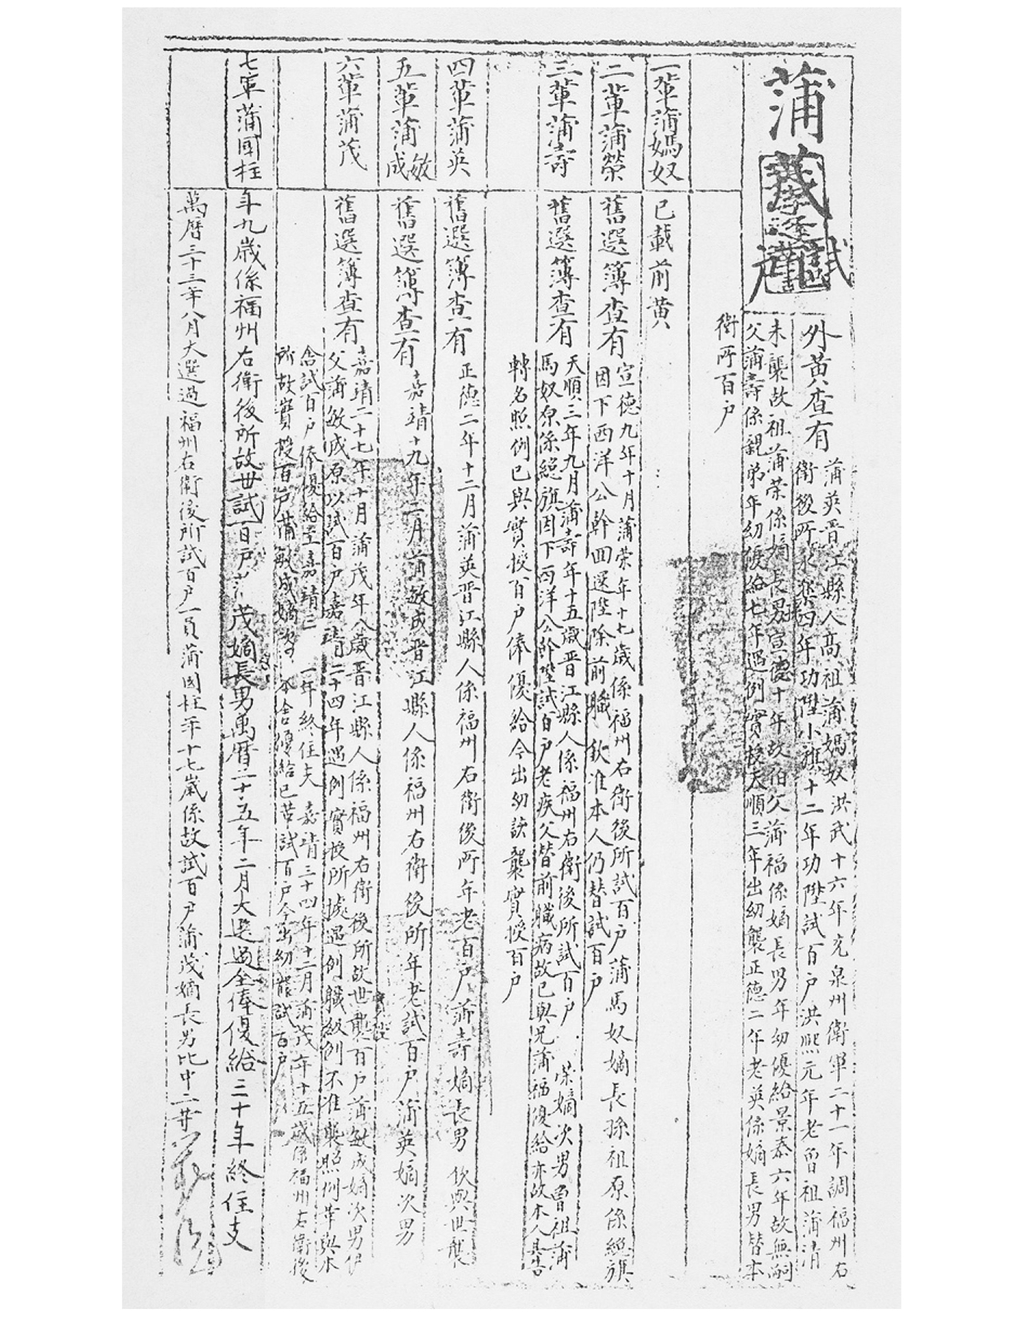 蒲茂
試
外黃查有
蒲英晋江縣人高祖蒲媽奴洪武十六年充泉州衛軍二十一年調福州右
衛後所永樂四年功陞小旗十二年功陞試百户洪熙元年老曾祖蒲清
未襲故祖蒲荣係嫡長男宣德十年故伯父蒲福係嫡長男年幼優給景泰六年故無嗣
父蒲壽係親弟年幼優給七年遇例實授天順三年出幼襲正德二年老英係嫡長男替本
衛所百户
一輩蒲媽奴
已載前黄
二輩蒲榮
舊選簿查有
宣德九年十月蒲荣年十七歲係福州右衛後所試百户蒲馬奴嫡長孫祖原係總旗
因下西洋公幹回還陞除前職欽准本人仍替試百户
三輩蒲壽
舊選簿查有
天順三年九月蒲壽年十五歲晋江縣人係福州右衛後所試百户 荣嫡次男曾祖蒲
馬奴原係總旗因下西洋公幹陞試百户老疾父替前職病故已與兄蒲福優給亦故本人具告
轉名照例已與實授百户俸優給今出幼該襲實授百户
四輩蒲英
舊選簿查有
正德二年十二月蒲英晋江縣人係福州右衛後所年老百户蒲壽嫡長男 欽與世襲
五輩蒲敏成
舊選簿查有
嘉靖十九年二月蒲敏成晋江縣人係福州右衛後所年老試百户蒲英嫡次男
六輩蒲茂
舊選簿查有
嘉靖二十七年十月蒲茂年八歲晋江縣人係福州右衛後所故世襲百户蒲敏成嫡次男伊
父蒲敏成原以試百户嘉靖二十四年遇例實授所據遇例職級例不准襲照例革與本
舍試百户俸優給至嘉靖三 一年終住支 嘉靖三十四年十二月蒲茂年十五歲係福州右衛後
所故實授百户蒲敏成嫡次 本舍優給已革試百户今出幼襲試百户
七輩蒲國柱
年九歲係福州右衛後所故世試百户 茂嫡長男萬曆二十五年二月大選過全俸優給三十年終住支
萬曆三十三年八月大選過福州右衛後所試百户一員蒲國柱年十七歲係故試百户蒲茂嫡長男比中二